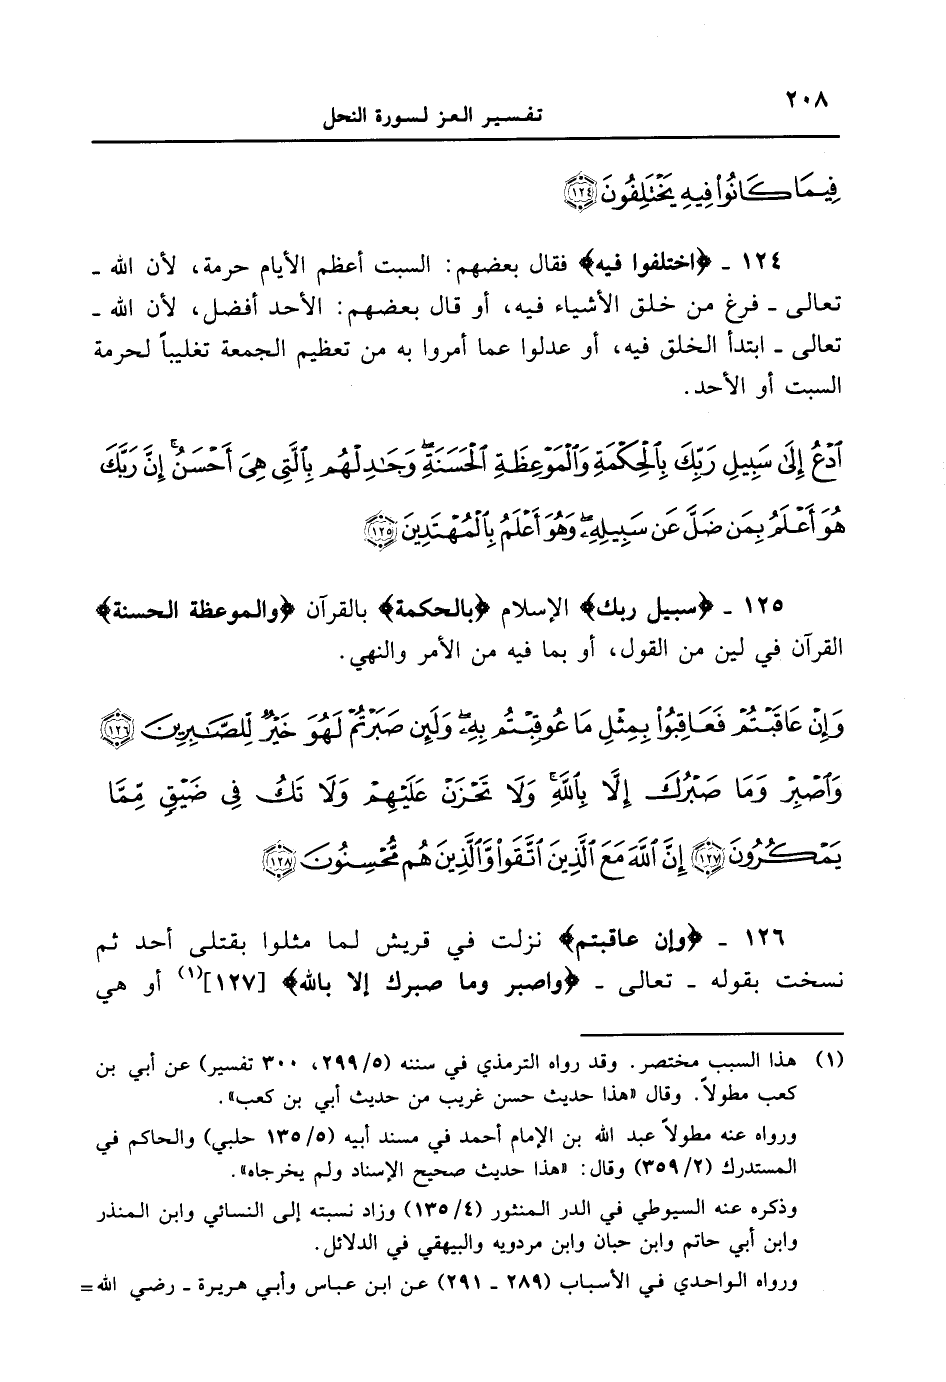 ٢٠٨
تفسير العز لسورة النحل
فِيمَا كَانُوا۟ فِيهِ يَخْتَلِفُونَ ۝١٢٤
١٢٤ ـ ﴿اختلفوا فيه﴾ فقال بعضهم: السبت أعظم الأيام حرمة، لأن الله ـ
تعالى ـ فرغ من خلق الأشياء فيه، أو قال بعضهم: الأحد أفضل، لأن الله ـ
تعالى ـ ابتدأ الخلق فيه، أو عدلوا عما أمروا به من تعظيم الجمعة تغليباً لحرمة
السبت أو الأحد.
ٱدْعُ إِلَىٰ سَبِيلِ رَبِّكَ بِٱلْحِكْمَةِ وَٱلْمَوْعِظَةِ ٱلْحَسَنَةِۖ وَجَٰدِلْهُم بِٱلَّتِى هِىَ أَحْسَنُۚ إِنَّ رَبَّكَ
هُوَ أَعْلَمُ بِمَن ضَلَّ عَن سَبِيلِهِۦۖ وَهُوَ أَعْلَمُ بِٱلْمُهْتَدِينَ ۝١٢٥
١٢٥ ـ ﴿سبيل ربك﴾ الإسلام ﴿بالحكمة﴾ بالقرآن ﴿والموعظة الحسنة﴾
القرآن في لين من القول، أو بما فيه من الأمر والنهي.
وَإِنْ عَاقَبْتُمْ فَعَاقِبُوا۟ بِمِثْلِ مَا عُوقِبْتُم بِهِۦۖ وَلَئِن صَبَرْتُمْ لَهُوَ خَيْرٌ لِّلصَّٰبِرِينَ ۝١٢٦
وَٱصْبِرْ وَمَا صَبْرُكَ إِلَّا بِٱللَّهِۚ وَلَا تَحْزَنْ عَلَيْهِمْ وَلَا تَكُ فِى ضَيْقٍ مِّمَّا
يَمْكُرُونَ ۝١٢٧ إِنَّ ٱللَّهَ مَعَ ٱلَّذِينَ ٱتَّقَوا۟ وَّٱلَّذِينَ هُم مُّحْسِنُونَ ۝١٢٨
١٢٦ ـ ﴿وإن عاقبتم﴾ نزلت في قريش لما مثلوا بقتلى أحد ثم
نسخت بقوله ـ تعالى ـ ﴿واصبر وما صبرك إلا بالله﴾ [١٢٧](١) أو هي
(١) هذا السبب مختصر. وقد رواه الترمذي في سننه (٢٩٩/٥، ٣٠٠ تفسير) عن أبي بن
كعب مطولاً. وقال «هذا حديث حسن غريب من حديث أبي بن كعب».
ورواه عنه مطولاً عبد الله بن الإمام أحمد في مسند أبيه (١٣٥/٥ حلبي) والحاكم في
المستدرك (٣٥٩/٢) وقال: «هذا حديث صحيح الإسناد ولم يخرجاه».
وذكره عنه السيوطي في الدر المنثور (١٣٥/٤) وزاد نسبته إلى النسائي وابن المنذر
وابن أبي حاتم وابن حبان وابن مردويه والبيهقي في الدلائل.
ورواه الواحدي في الأسباب (٢٨٩ ـ ٢٩١) عن ابن عباس وأبي هريرة ـ رضي الله =